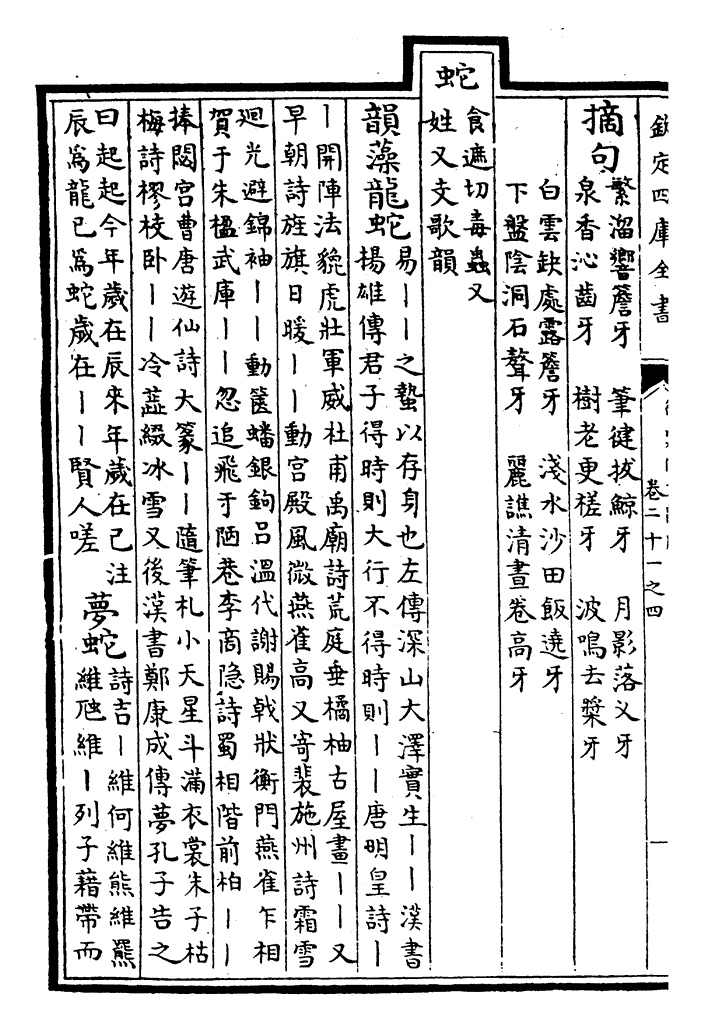 欽定四庫全書
卷二十一之四
摘句
繁溜響簷牙　筆健拔鯨牙　月影落义牙
泉香沁齒牙　樹老更槎牙　波鳴去槳牙
白雲缺處露簷牙　淺水沙田飯遶牙
下盤陰洞石聱牙　麗譙清晝卷高牙
蛇
食遮切毒蟲又
姓又支歌韻
韻藻龍蛇
易丨丨之蟄以存身也左傳深山大澤實生丨丨漢書
揚雄傳君子得時則大行不得時則丨丨唐明皇詩丨
丨開陣法貔虎壯軍威杜甫禹廟詩荒庭垂橘柚古屋畫丨丨又
早朝詩旌旗日暖丨丨動宮殿風微燕雀高又寄裴施州詩霜雪
廻光避錦袖丨丨動篋蟠銀鉤呂溫代謝賜戟狀衡門燕雀乍相
賀于朱楹武庫丨丨忽追飛于陋巷李商隐詩蜀相階前柏丨丨
捧閟宮曹唐遊仙詩大篆丨丨隨筆札小天星斗滿衣裳朱子枯
梅詩樛枝卧丨丨冷蘂綴冰雪又後漢書鄭康成傳夢孔子告之
曰起起今年歲在辰來年歲在已注
辰為龍已為蛇歲在丨丨賢人嗟
夢蛇
詩吉丨維何維熊維羆
維虺維丨列子藉帶而